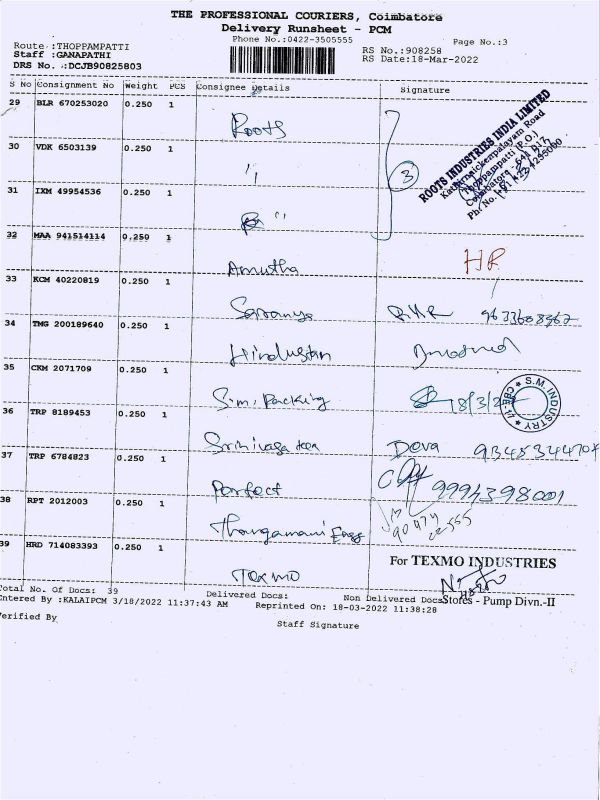 THE PROFESSIONAL COURIERS, Coimbatore
Delivery Runsheet - PCM
Phone No.:0422-3505555
Page No.:3
Route :THOPPAMPATTI
RS No.:908258
Staff :GANAPATHI
RS Date:18-Mar-2022
DRS No. :DCJB90825803
S No Consignment No Weight PCS Consignee Details Signature
29 BLR 670253020 0.250 1
Roots
ROOTS INDUSTRIES INDIA LIMITED
Kathirnaickenpalayam Road
Thoppampatti (P.O.)
Coimbatore - 641 017
30 VDK 6503139 0.250 1
"
3
31 IXM 49954536 0.250 1
"
32 MAA 941514114 0.250 1
Amutha
HR
33 KCM 40220819 0.250 1
Saranya
34 TMG 200189640 0.250 1
Hindustan
35 CKM 2071709 0.250 1
S.m. Packing 18/3/22
S.M. INDUSTRY
36 TRP 8189453 0.250 1
Deva 9384534470
37 TRP 6784823 0.250 1
Perfect
38 RPT 2012003 0.250 1
Thangamani Engg
39 HRD 714083393 0.250 1
Texmo
For TEXMO INDUSTRIES
Total No. Of Docs: 39 Delivered Docs: Non Delivered Docs
Stores - Pump Divn.-II
Entered By :KALAIPCM 3/18/2022 11:37:43 AM Reprinted On: 18-03-2022 11:38:28
Verified By
Staff Signature